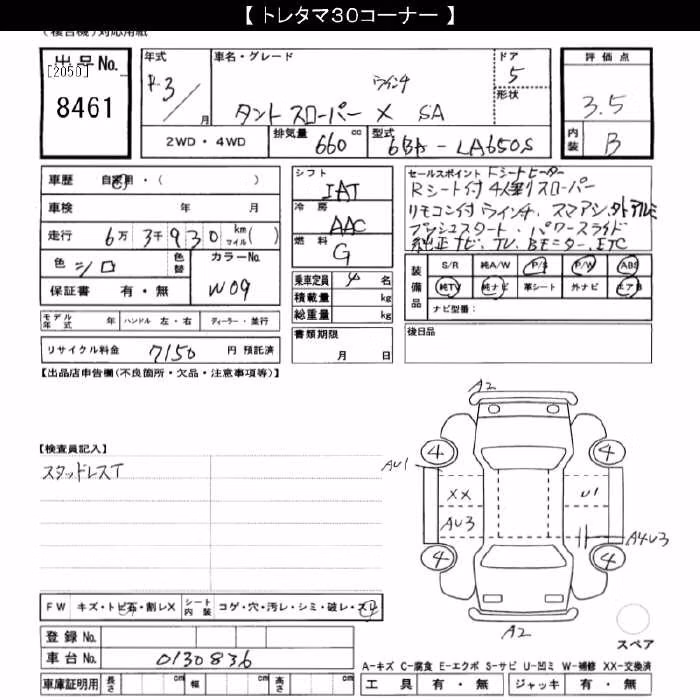 【 トレタマ30コーナー 】
(複合機)対応用紙
出品No. 年式 車名・グレード ドア 評価点
[2050] R3/月 ウインチ 5
8461 タント スローパー X SA 形状 3.5
2WD・4WD 排気量 660 cc 型式 6BA-LA650S 内装 B
車歴 自家用・( ) シフト IAT セールスポイント Fシートヒーター
Rシート付 4人乗りスローパー
車検 年 月 冷房 AAC リモコン付ウインチ、スマアシ、外アルミ
走行 6万3千930 km マイル( ) 燃料 G プッシュスタート、パワースライド
純正ナビ、TV、Bモニター、ETC
色 シロ 色替 カラーNo. W09 乗車定員 4 名 装備品 S/R 純A/W P/S P/W ABS
保証書 有・無 積載量 kg 純TV 純ナビ 革シート 外ナビ エアB
総重量 kg ナビ型番:
モデル年式 年 ハンドル 左・右 ディーラー・並行 書類期限 月 日 後日品
リサイクル料金 7150 円 預託済
【出品店申告欄(不良箇所・欠品・注意事項等)】
A2
【検査員記入】
スタッドレスT
4 4
AU1
XX U1
AU3 A4U3
4 4
A2
FW キズ・トビ石・割レX シート内装 コゲ・穴・汚レ・シミ・破レ・スレ
登録No.
スペア
車台No. 0130836
A-キズ C-腐食 E-エクボ S-サビ U-凹ミ W-補修 XX-交換済
車庫証明用 長さ cm 幅 cm 高さ cm 工具 有・無 ジャッキ 有・無